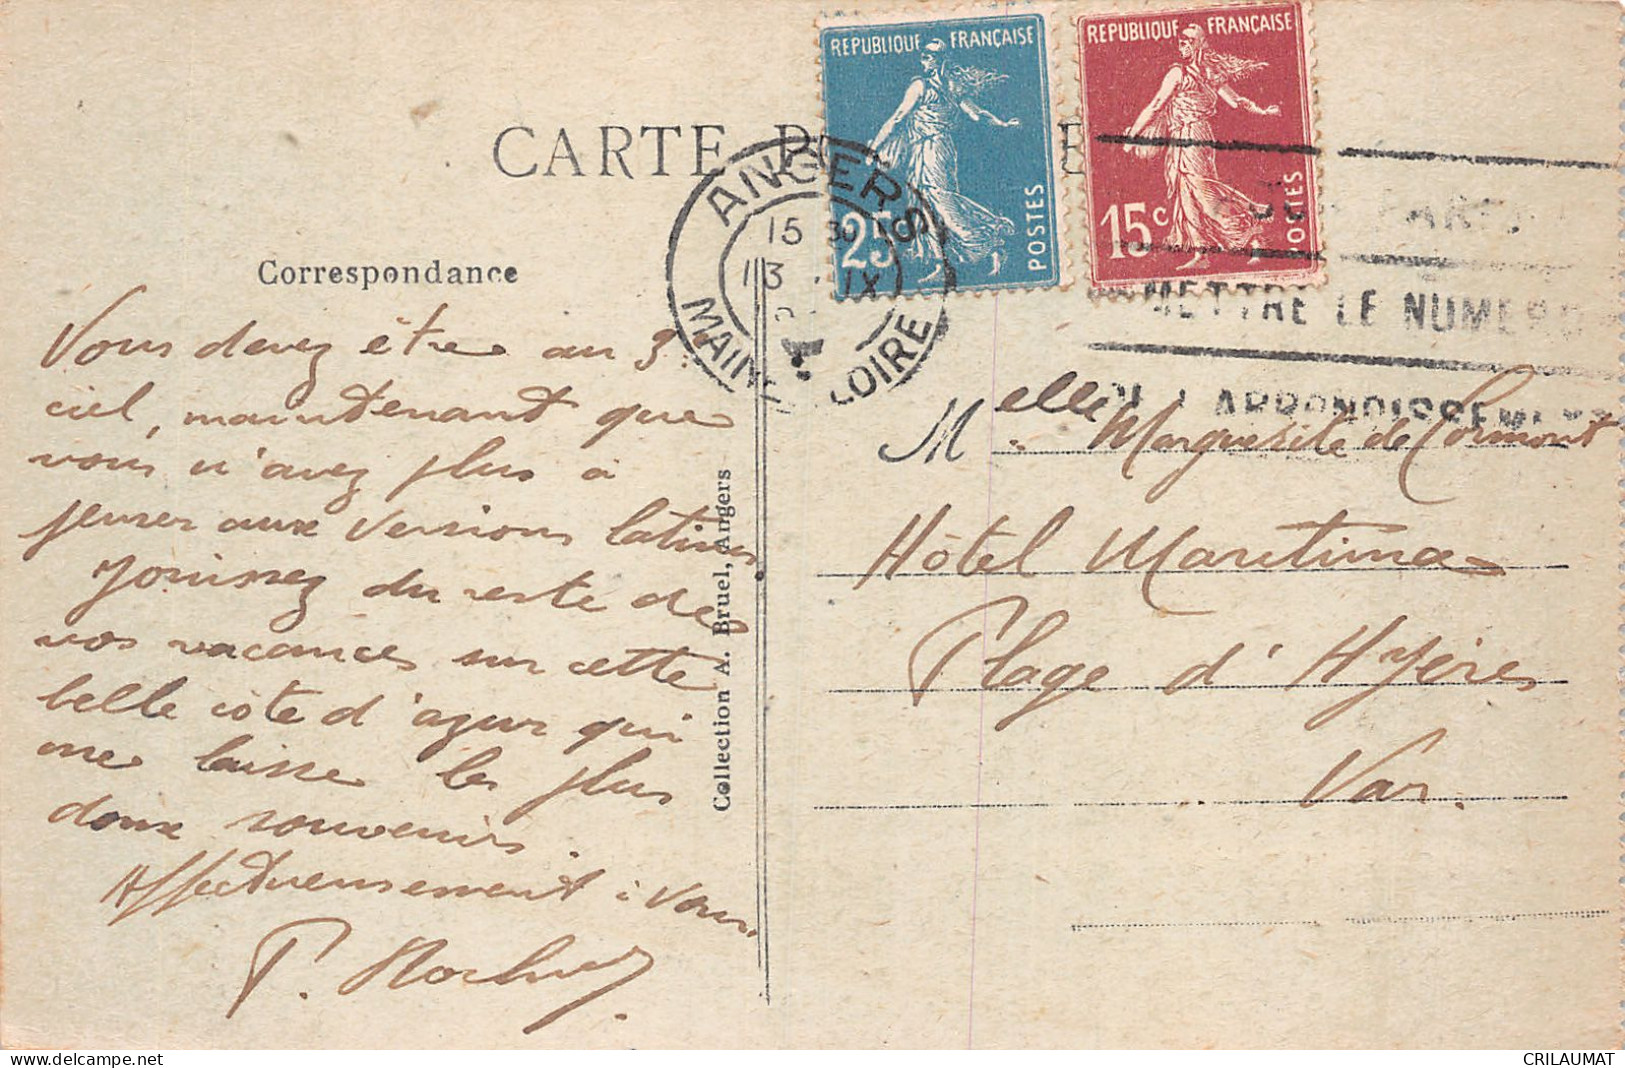 CARTE
REPUBLIQUE FRANÇAISE
25
POSTES
REPUBLIQUE FRANÇAISE
15c
POSTES
ANGERS
15 30
13 IX
MAINE LOIRE
METTRE LE NUMERO
ARRONDISSEMENT
Correspondance
Vous devez être au 3e
ciel, maintenant que
vous n'avez plus à
penser aux versions latines.
Jouissez du reste de
vos vacances sur cette
belle côte d'azur qui
me laisse les plus
doux souvenirs.
Affectueusement à vous.
P.
Collection A. Bruel, Angers
Melle Marguerite de Cormont
Hôtel Maritima
Plage d'Hyères
Var.
CRILAUMAT
delcampe.net